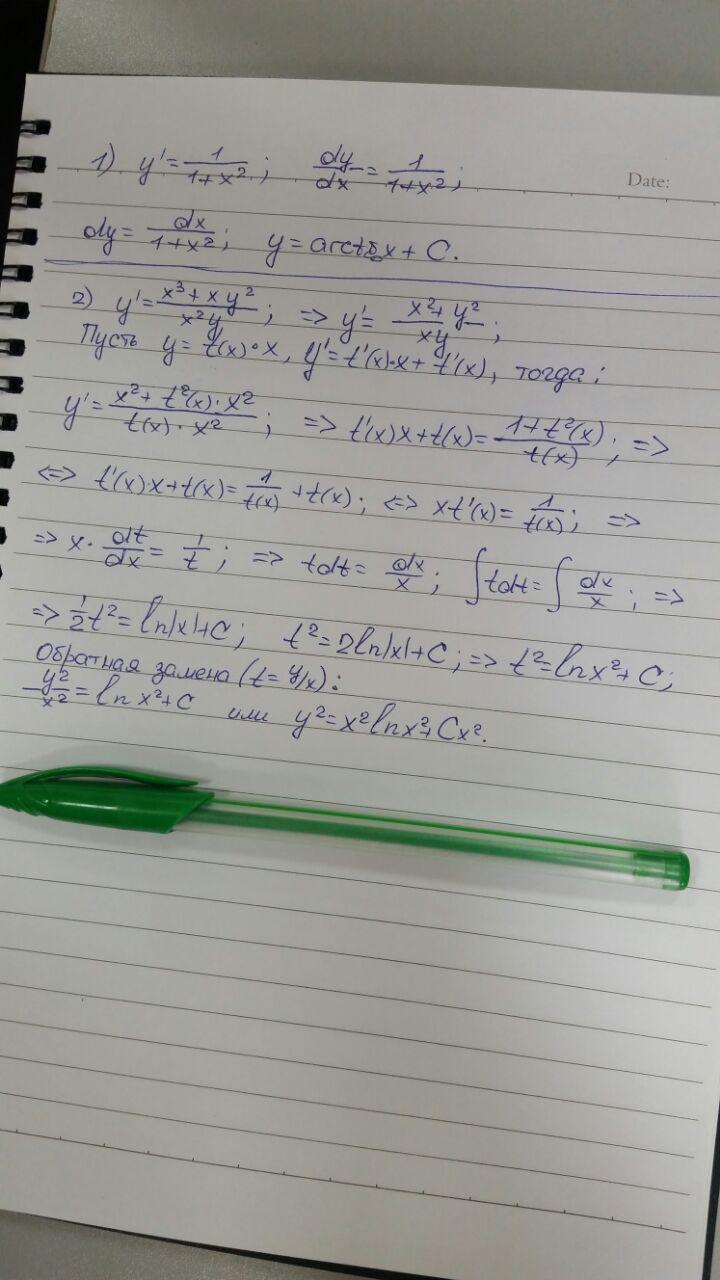 1) y' = 1/(1+x²); dy/dx = 1/(1+x²);
Date:
dy = dx/(1+x²); y = arctg x + C.
2) y' = (x³ + xy²)/(x²y); => y' = (x² + y²)/(xy);
Пусть y = t(x)·x, y' = t'(x)·x + t'(x), тогда:
y' = (x² + t²(x)·x²)/(t(x)·x²); => t'(x)x + t(x) = (1 + t²(x))/t(x); =>
<=> t'(x)x + t(x) = 1/t(x) + t(x); <=> xt'(x) = 1/t(x); =>
=> x · dt/dx = 1/t; => tdt = dx/x; ∫tdt = ∫dx/x; =>
=> 1/2 t² = ln|x| + C; t² = 2ln|x| + C; => t² = lnx² + C;
Обратная замена (t = y/x):
y²/x² = ln x² + C или y² = x² lnx² + Cx².